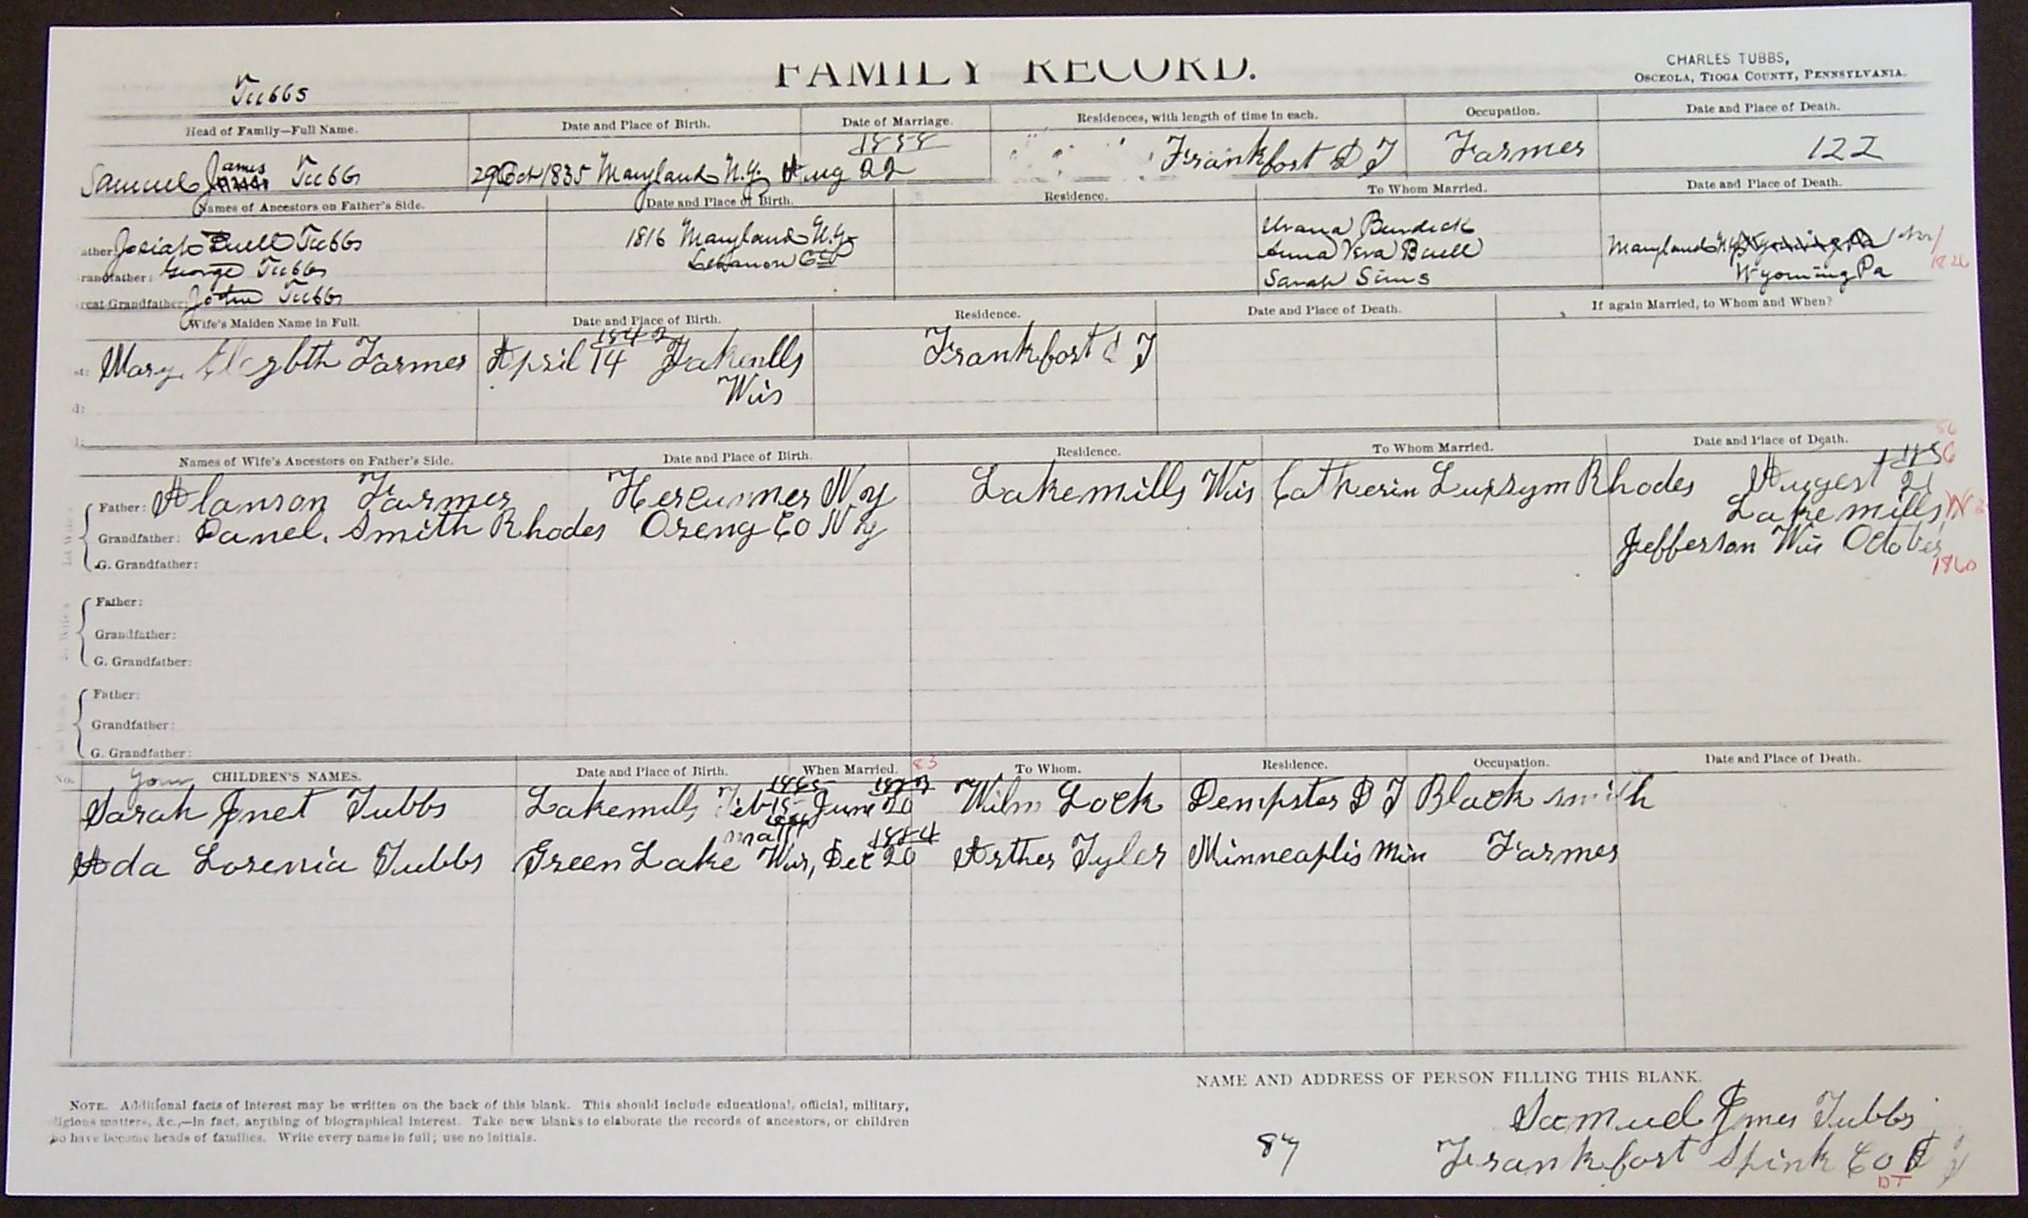 FAMILY RECORD.
CHARLES TUBBS,
OSCEOLA, TIOGA COUNTY, PENNSYLVANIA.
Tubbs
Head of Family—Full Name. Date and Place of Birth. Date of Marriage. Residences, with length of time in each. Occupation. Date and Place of Death.
1858
Samuel James Tubbs 29 Oct 1835 Maryland N.Y. Aug 22 Frankfort D T Farmer 122
Names of Ancestors on Father's Side. Date and Place of Birth. Residence. To Whom Married. Date and Place of Death.
ather: Josiah Buell Tubbs 1816 Maryland N.Y. Urana Burdick Maryland N.Y.
randfather: George Tubbs Lebanon Anna Vera Buell 1826
reat-Grandfather: John Tubbs Sarah Sims Wyoming Pa
Wife's Maiden Name in Full. Date and Place of Birth. Residence. Date and Place of Death. If again Married, to Whom and When?
1842
st: Mary Elezbth Farmer April 14 Lakemlls Frankfort D T
Wis
d:
Names of Wife's Ancestors on Father's Side. Date and Place of Birth. Residence. To Whom Married. Date and Place of Death.
Father: Alanson Farmer Hercumer N y Lakemills Wis Catherin Rhodes Augest 21
Lakemills
Grandfather: Danel. Smith Rhodes Oreng Co N y Jefferson Wis October
G. Grandfather: 1860
Father:
Grandfather:
G. Grandfather:
Father:
Grandfather:
G. Grandfather:
No. CHILDREN'S NAMES. Date and Place of Birth. When Married. 83 To Whom. Residence. Occupation. Date and Place of Death.
1865
Sarah Jnet Tubbs Lakemills Feb 15 June 20 Wilm Lock Dempster D T Black smith
1884
Ada Lorenia Tubbs Green Lake Wis, Dec 20 Arther Tyler Minneaplis Min Farmer
NAME AND ADDRESS OF PERSON FILLING THIS BLANK.
NOTE. Additional facts of interest may be written on the back of this blank. This should include educational, official, military,
ligious matters, &c.,—in fact, anything of biographical interest. Take new blanks to elaborate the records of ancestors, or children
ho have become heads of families. Write every name in full; use no initials.
Samuel Jmes Tubbs
87
Frankfort Spink Co D T
DT